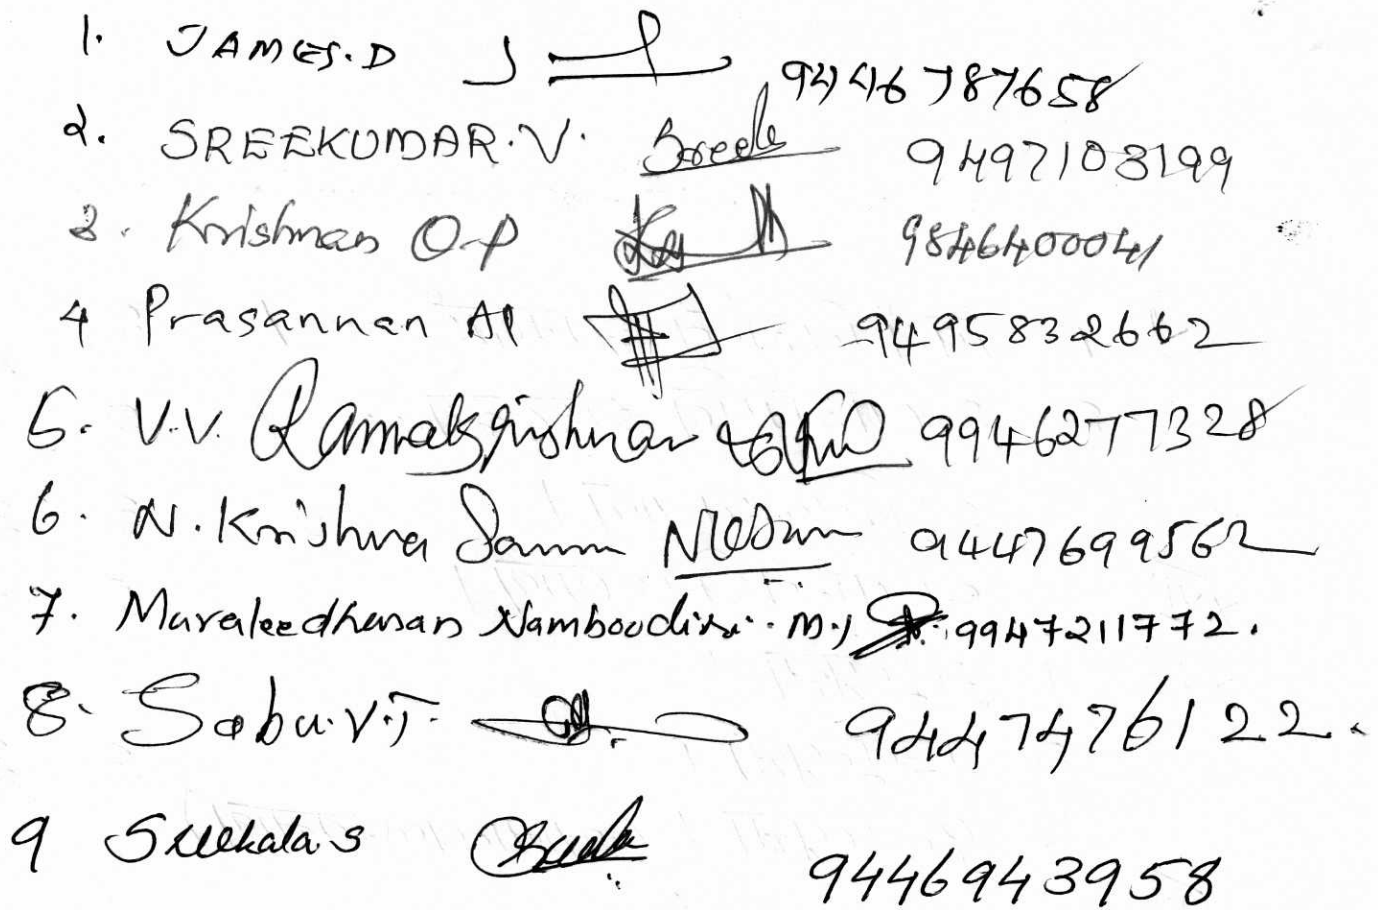 1. JAMES.D 9446787658
2. SREEKUMAR.V. Sree 9497103199
3. Krishnan O.P 9846400041
4 Prasannan AP 9495832662
5. V.V. Ramakrishnan 9946277328
6. N. Krishna 9447699562
7. Muraleedharan Namboodiri. M.J 9947211772.
8. Sabu.V.T. 9447476122.
9 Sreekala S 9446943958